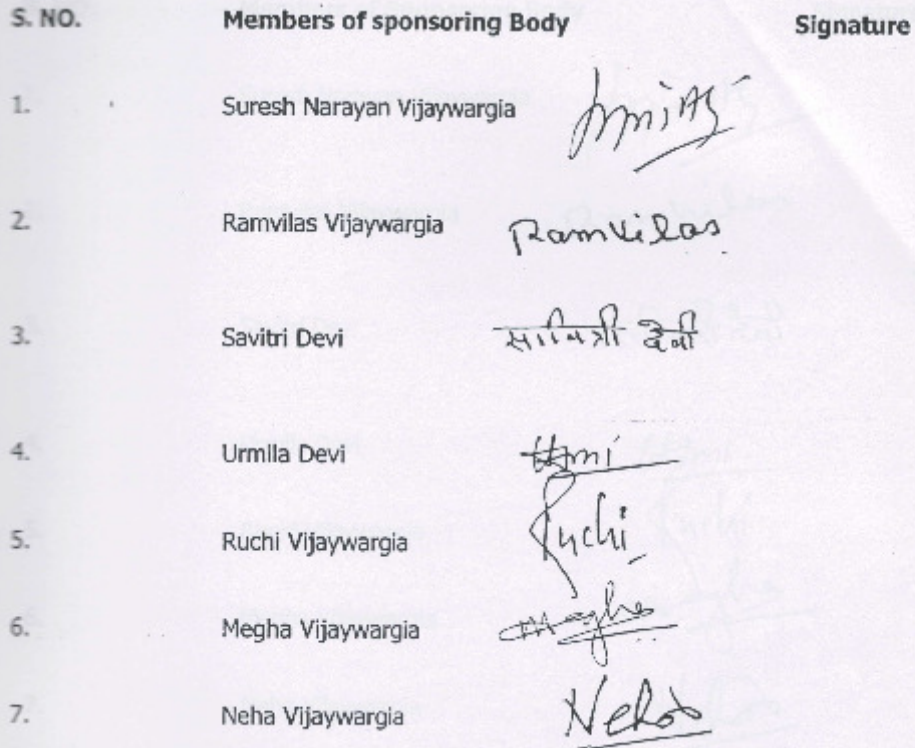 S. NO. Members of sponsoring Body Signature
1. Suresh Narayan Vijaywargia
2. Ramvilas Vijaywargia Ramvilas
3. Savitri Devi सावित्री देवी
4. Urmila Devi
5. Ruchi Vijaywargia Ruchi
6. Megha Vijaywargia Megha
7. Neha Vijaywargia Neha